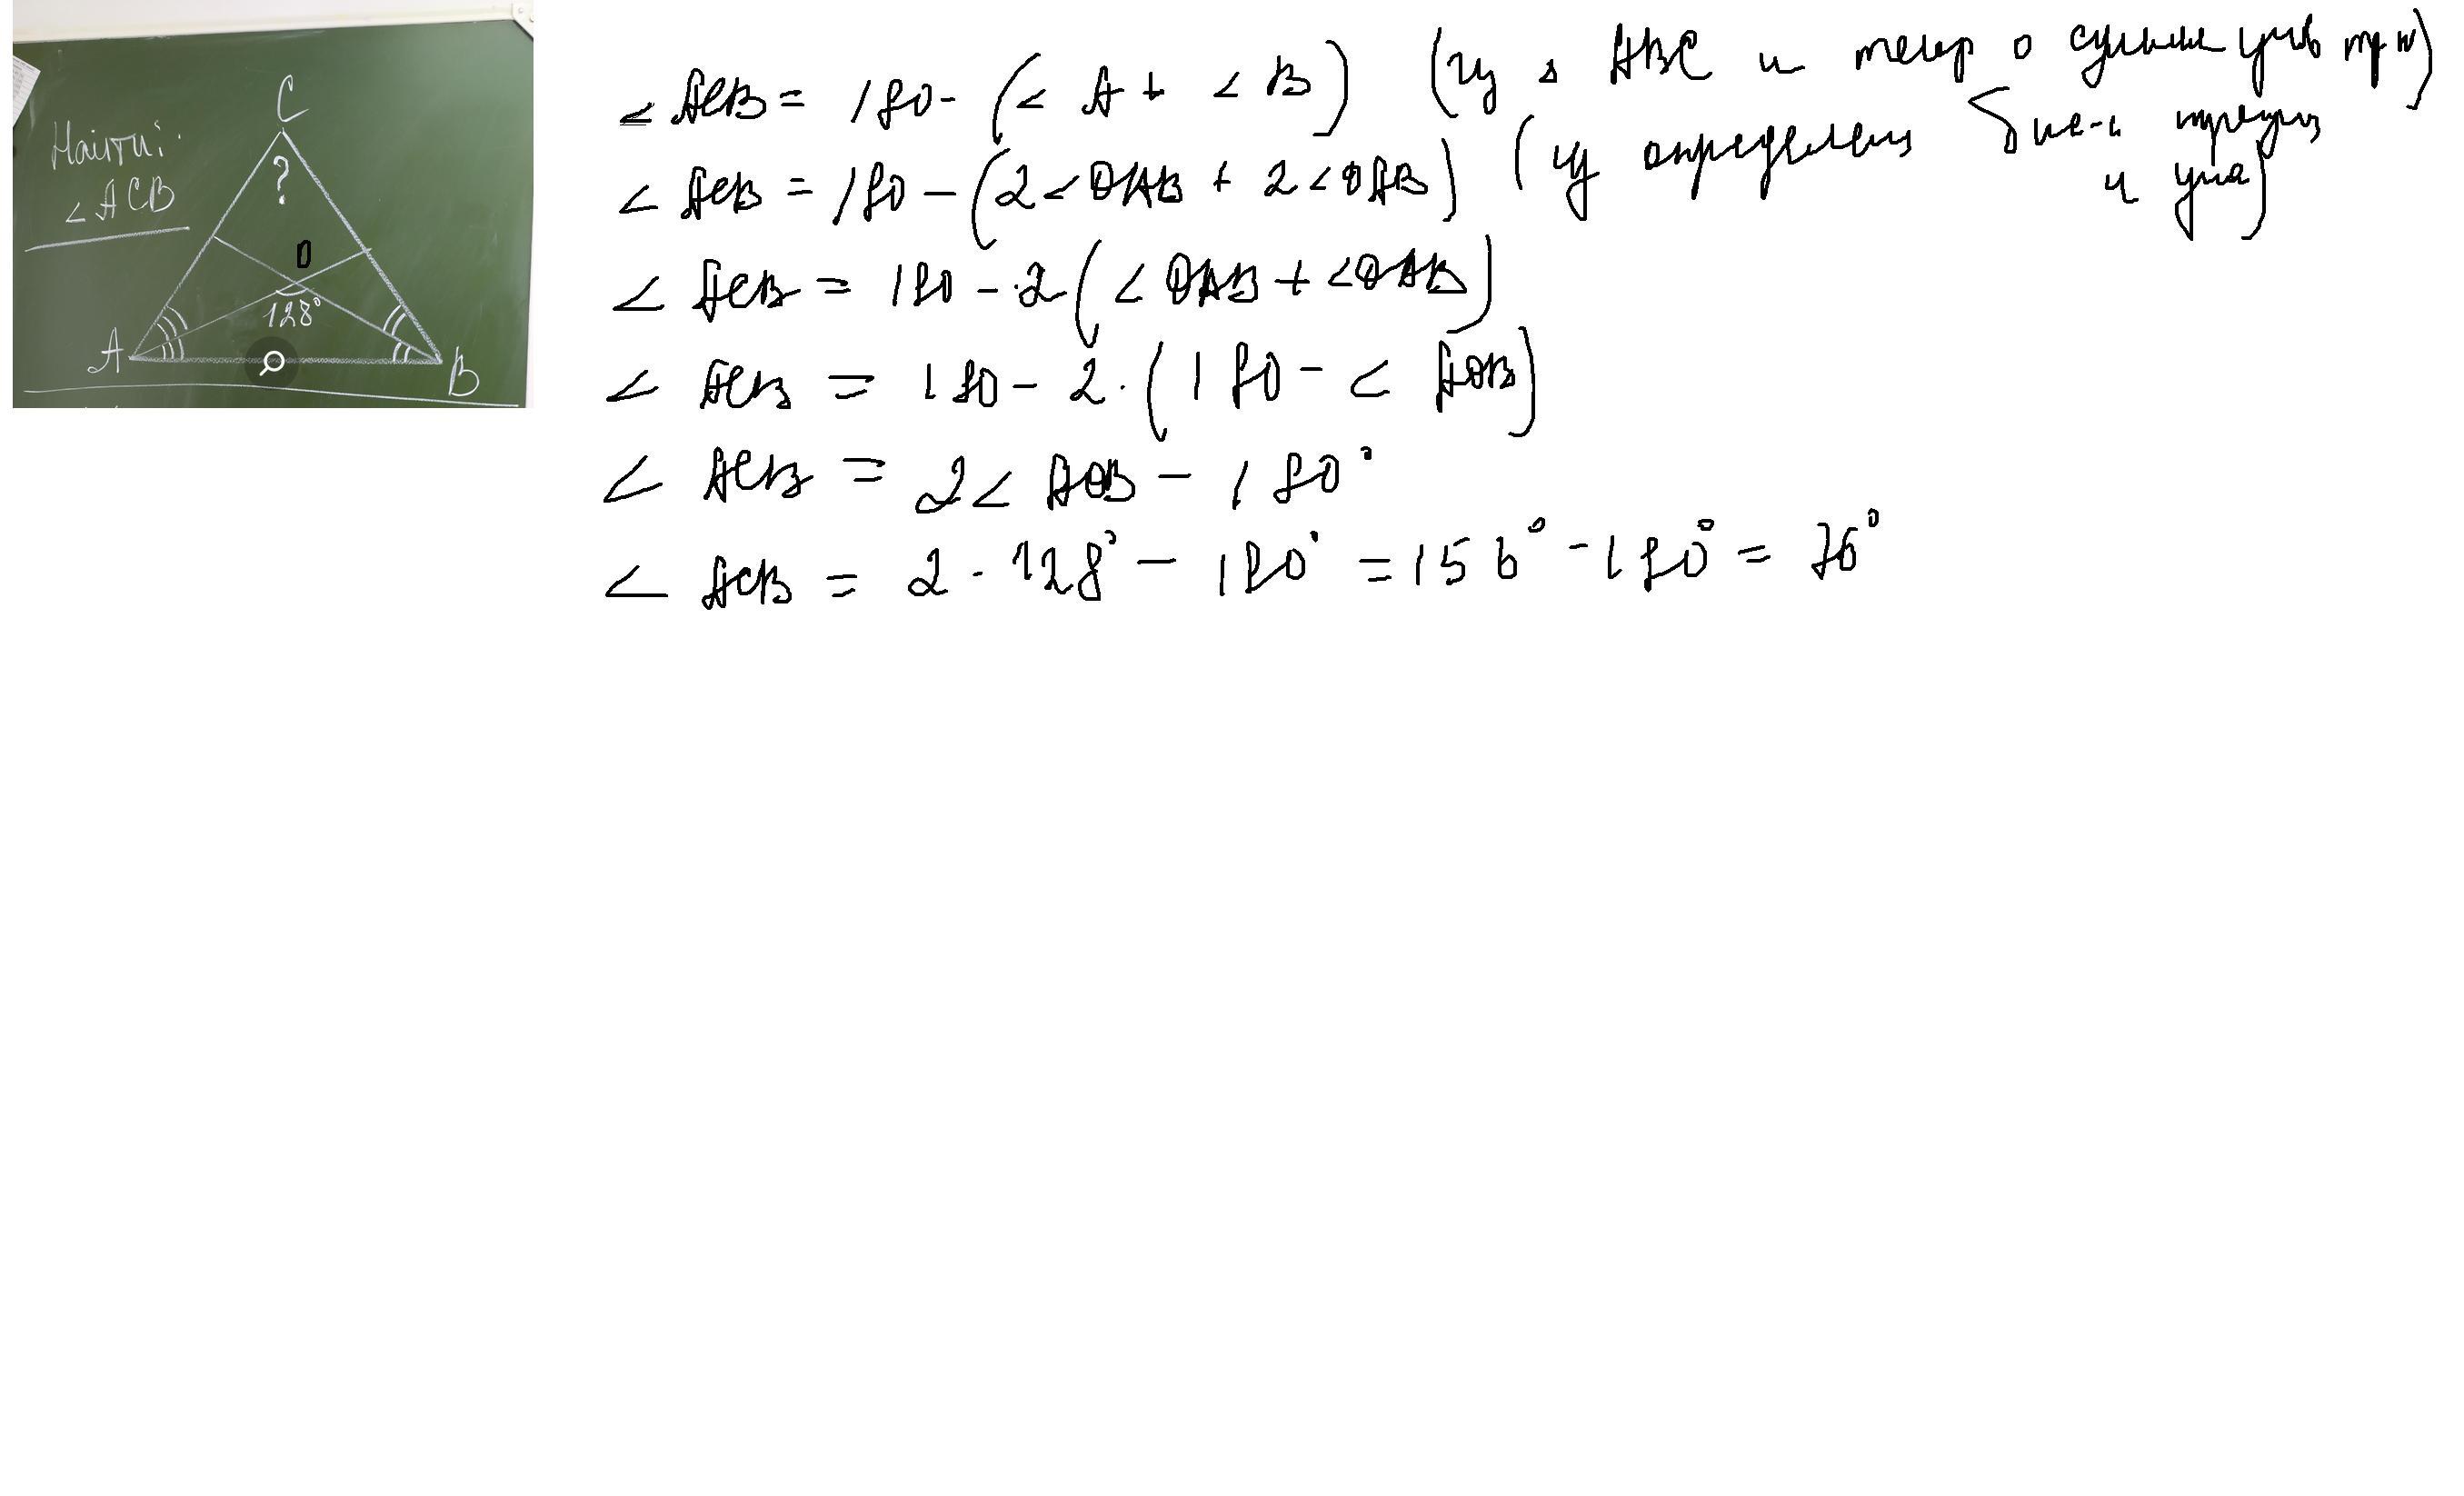 Найти:
∠ACB
C
?
O
128°
A
B
∠ACB = 180 - (∠A + ∠B) (из Δ ABC и теор о сумме углв тр к)
∠ACB = 180 - (2∠OAB + 2∠OAB) (из определен бис-ы треуг и угла)
∠ACB = 180 - 2(∠OAB + ∠OAB)
∠ACB = 180 - 2·(180 - ∠AOB)
∠ACB = 2∠AOB - 180°
∠ACB = 2·128° - 180° = 156° - 180° = 76°